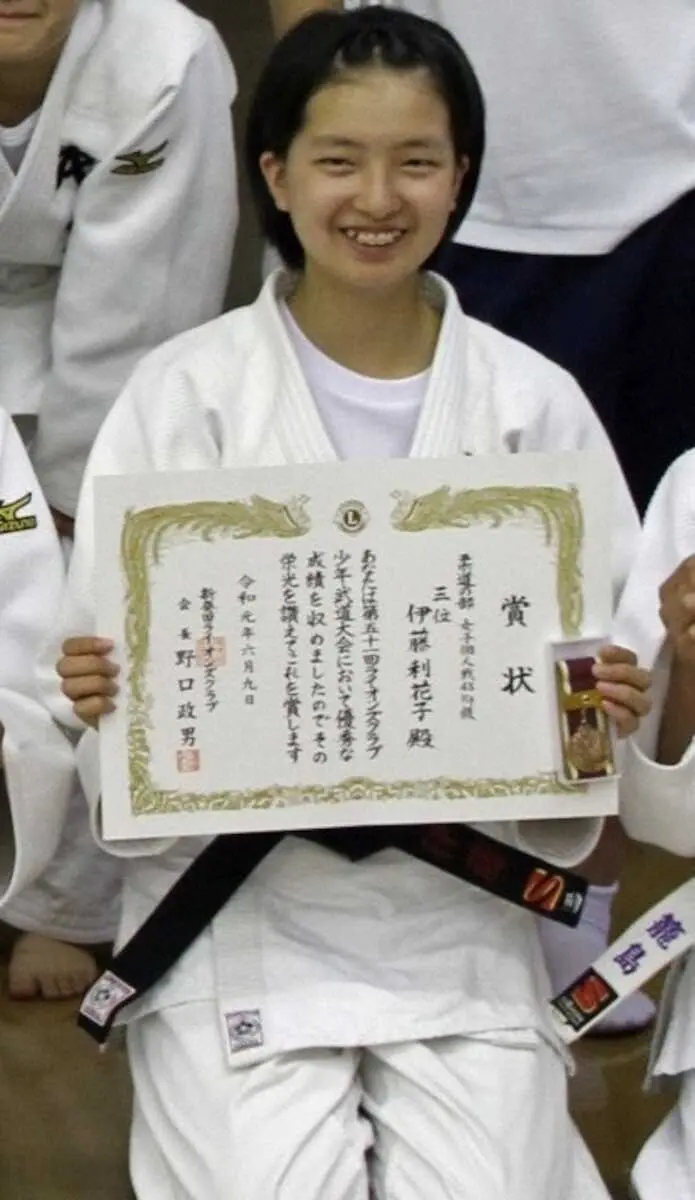 賞状
柔道の部 女子個人戦48kg級
三位
伊藤利花子殿
あなたは第五十一回ライオンズクラブ
少年武道大会において優秀な
成績を収めましたのでその
栄光を讃えてこれを賞します
令和元年六月九日
新発田ライオンズクラブ
会長 野口政男
L
籠島
S
S